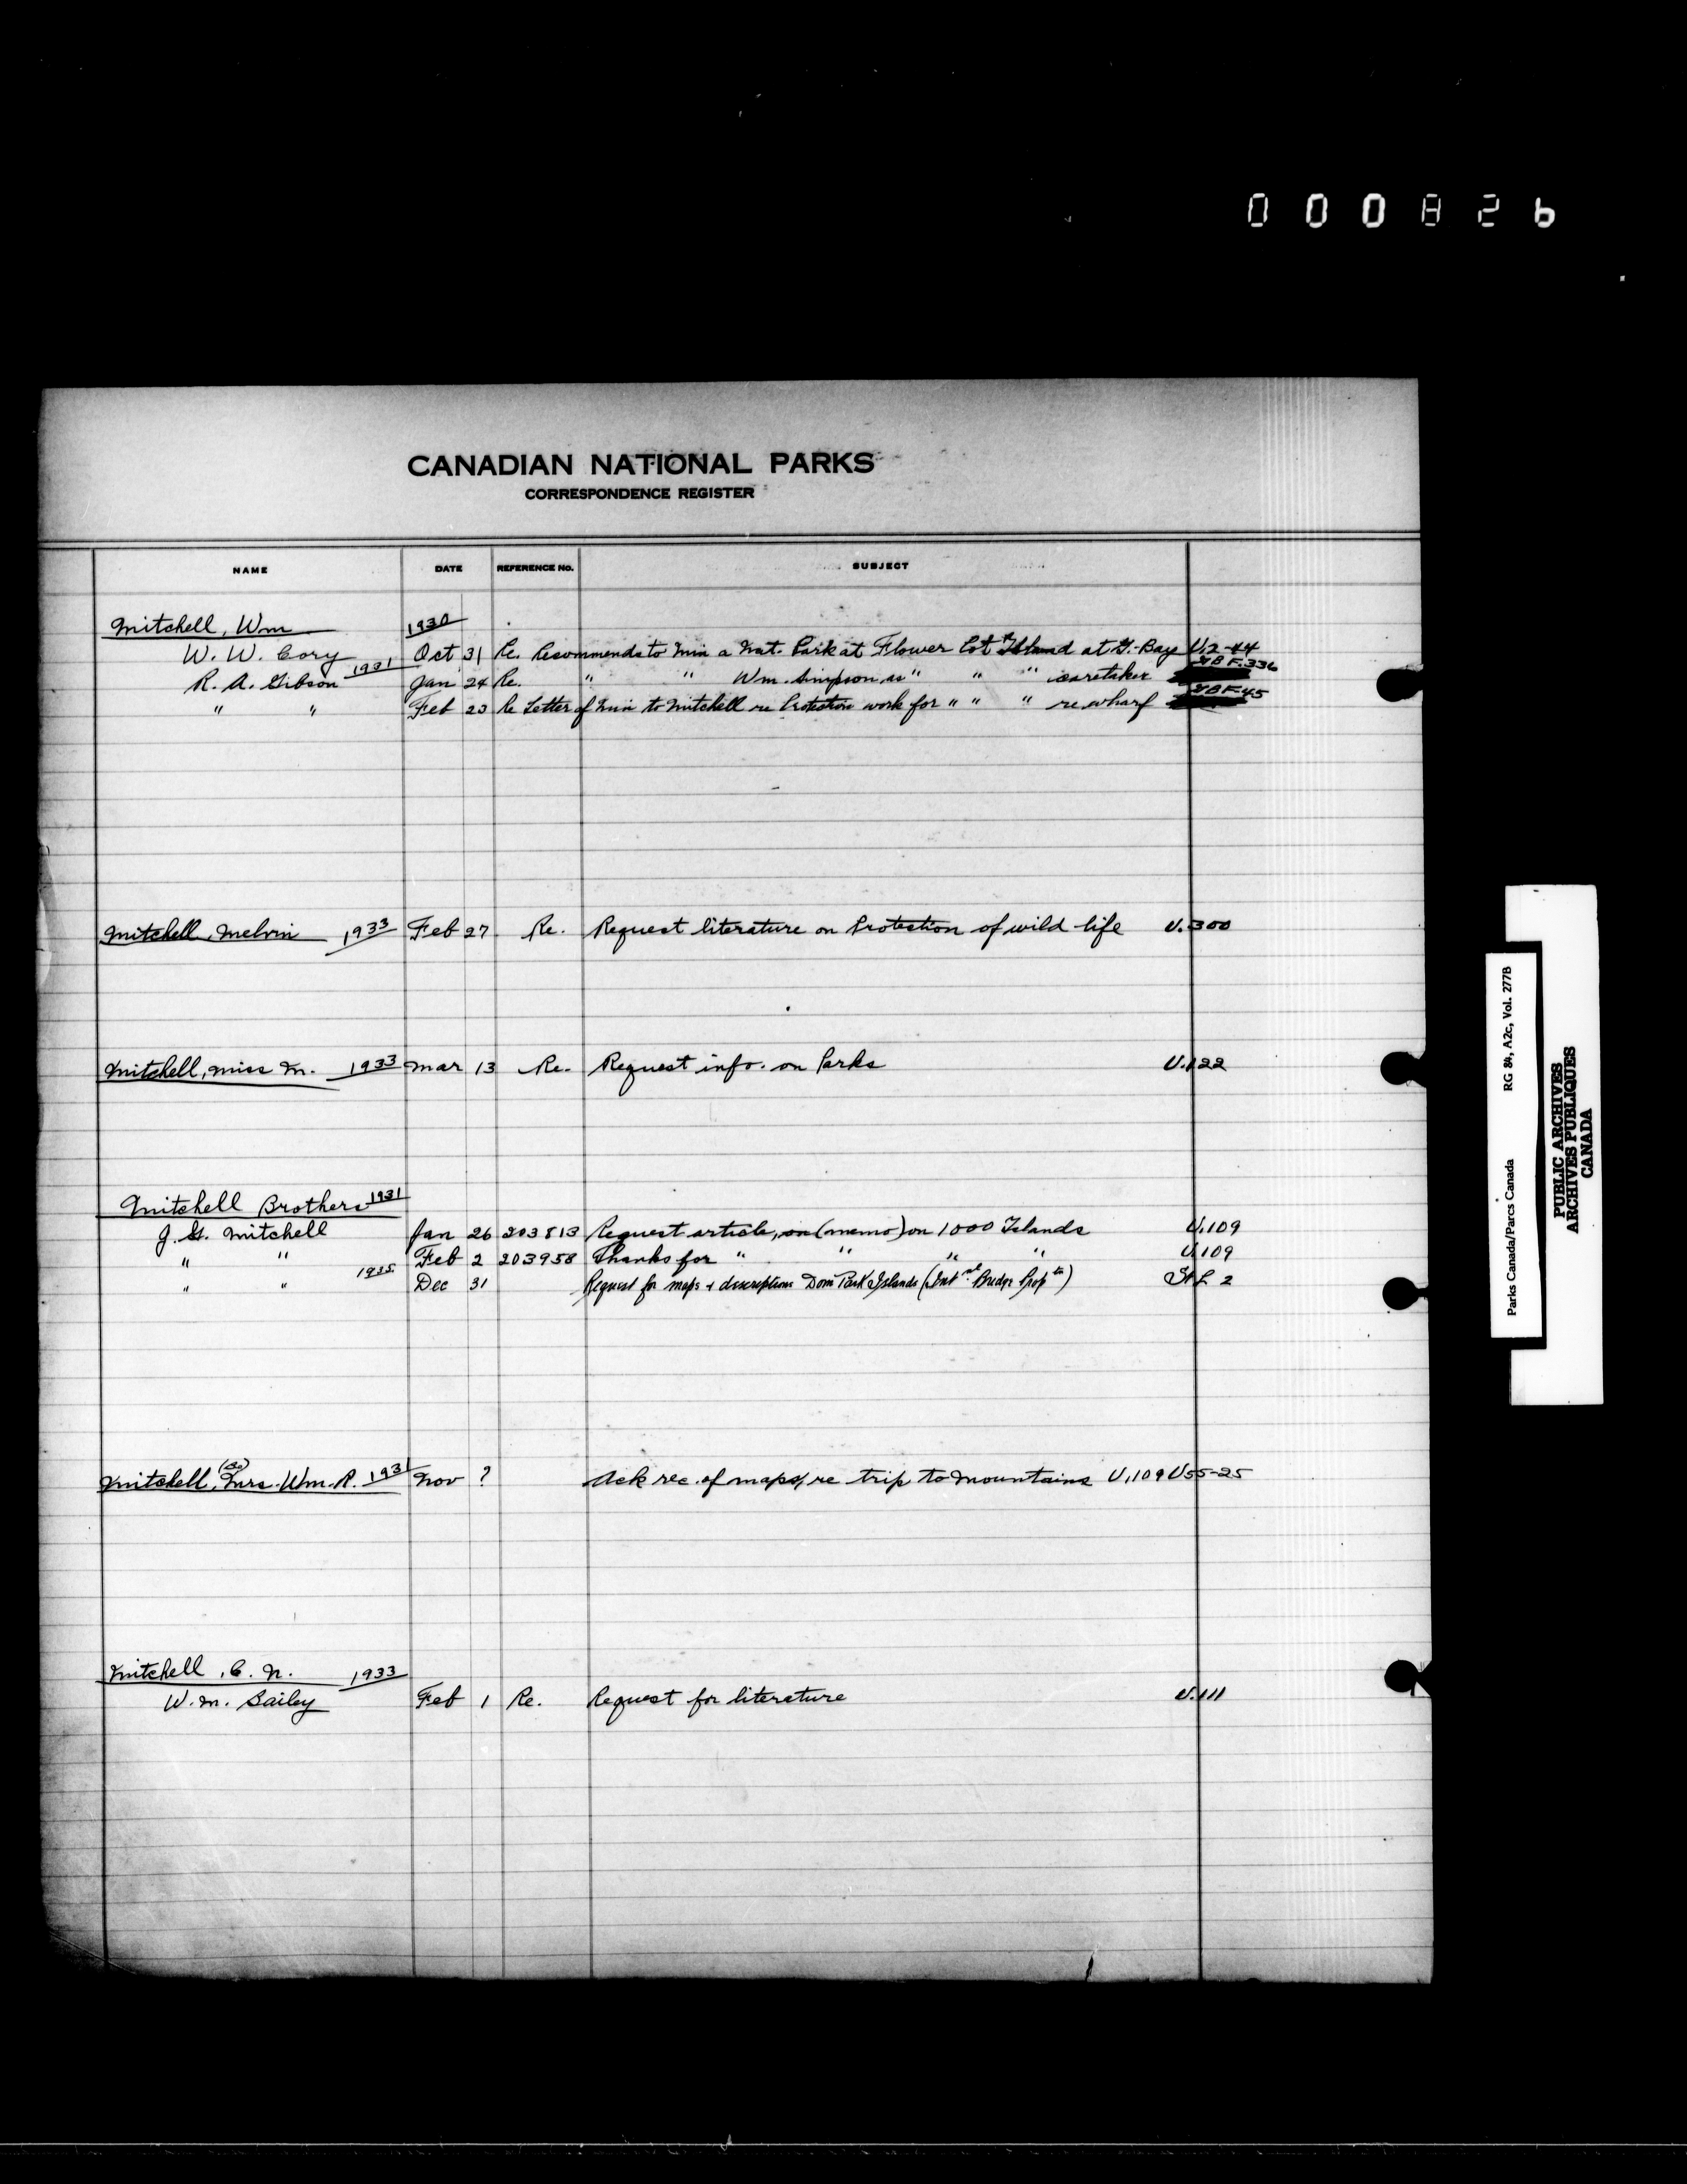 000826
CANADIAN NATIONAL PARKS
CORRESPONDENCE REGISTER
NAME DATE REFERENCE No. SUBJECT
Mitchell, Wm 1930
W. W. Cory Oct 31 Re. Recommends to Min a Nat. Park at Flower Pot Island at G. Bay U.2-44
1931
R. A. Gibson Jan 24 Re. " " Wm. Simpson as " " " caretaker GBF.336
" " Feb 23 Re Letter of Min to Mitchell re Protection work for " " " re wharf GBF-45
Mitchell, Melvin 1933 Feb 27 Re. Request literature on Protection of wild life U.300
Mitchell, Miss M. 1933 Mar 13 Re. Request info. on Parks U.122
Mitchell Brothers 1931
J. G. Mitchell Jan 26 203813 Request article, on (memo) on 1000 Islands U.109
" " Feb 2 203958 Thanks for " " " " U.109
" " 1935 Dec 31 Request for maps & descriptions Dom Park Islands (Int nl Bridge Prop tn) St L 2
Mitchell, Mrs. Wm. R. 1931 Nov ? Ack rec. of maps, re trip to Mountains U.109 U55-25
Mitchell, C. N. 1933
W. M. Bailey Feb 1 Re. Request for literature U.111
Parks Canada/Parcs Canada RG 84, A2c, Vol. 277B
PUBLIC ARCHIVES
ARCHIVES PUBLIQUES
CANADA